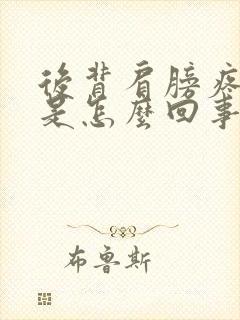 後背肩膀疼
是怎麼回事
布鲁斯